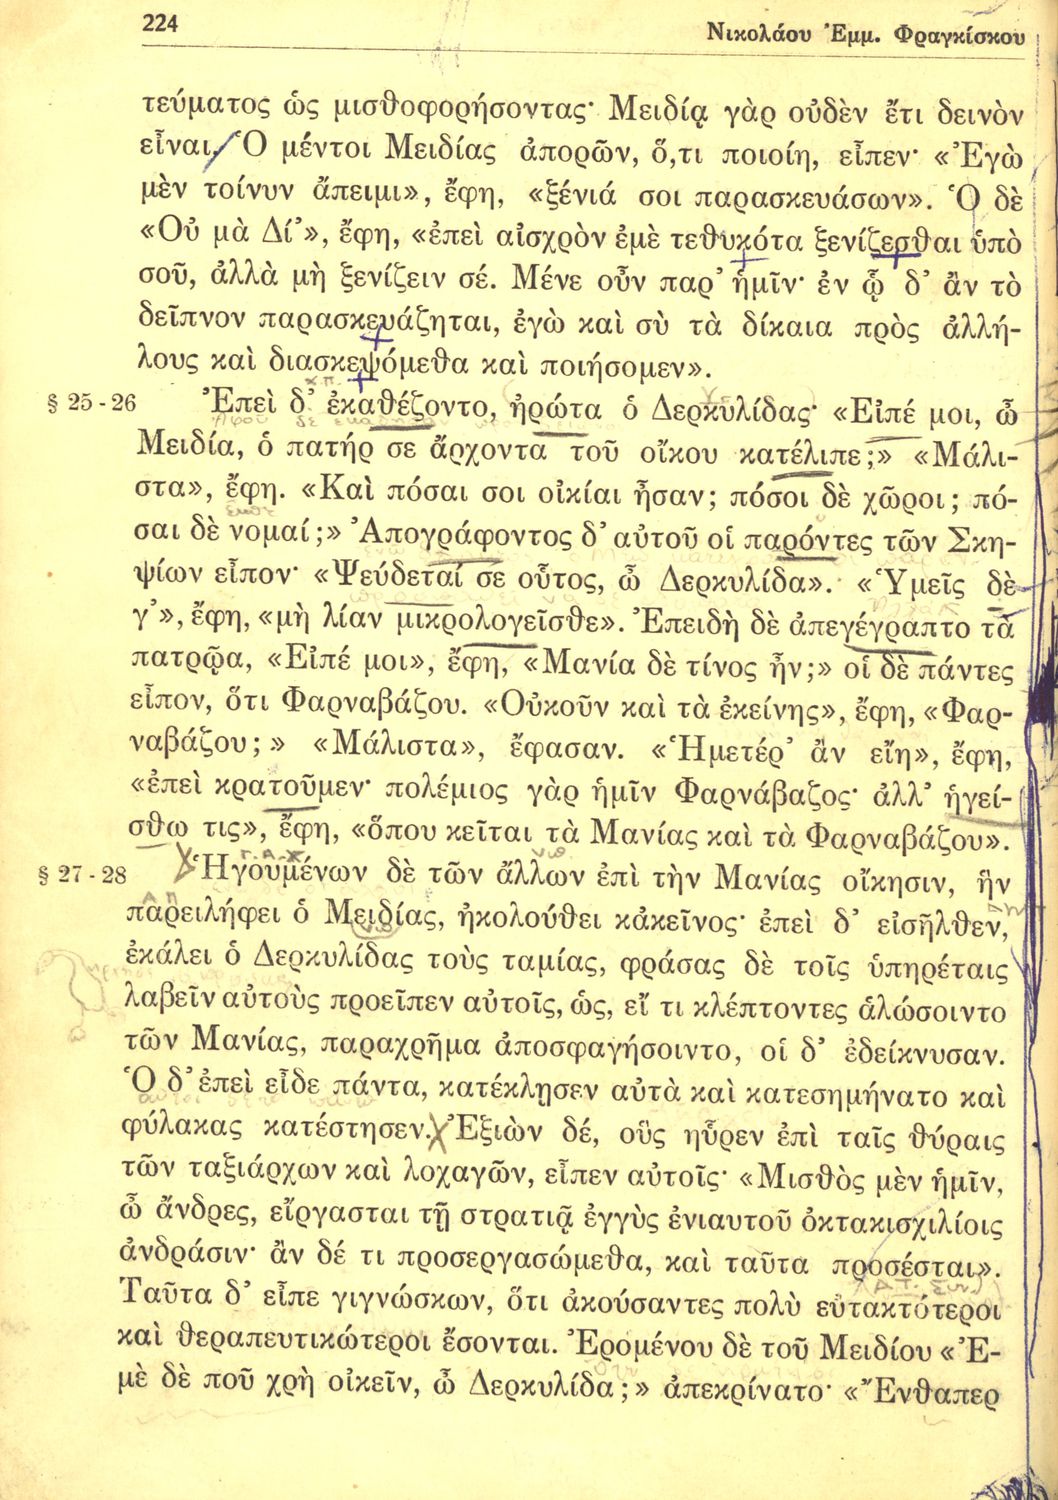 224
Νικολάου Ἐμμ. Φραγκίσκου
τεύματος ὡς μισθοφορήσοντας· Μειδίᾳ γὰρ οὐδὲν ἔτι δεινὸν
εἶναι. Ὁ μέντοι Μειδίας ἀπορῶν, ὅ,τι ποιοίη, εἶπεν· «Ἐγὼ
μὲν τοίνυν ἄπειμι», ἔφη, «ξένιά σοι παρασκευάσων». Ὁ δὲ
«Οὐ μὰ Δί’», ἔφη, «ἐπεὶ αἰσχρὸν ἐμὲ τεθυκότα ξενίζεσθαι ὑπὸ
σοῦ, ἀλλὰ μὴ ξενίζειν σέ. Μένε οὖν παρ’ ἡμῖν· ἐν ᾧ δ’ ἂν τὸ
δεῖπνον παρασκευάζηται, ἐγὼ καὶ σὺ τὰ δίκαια πρὸς ἀλλή-
λους καὶ διασκεψόμεθα καὶ ποιήσομεν».
§ 25 - 26 Ἐπεὶ δ’ ἐκαθέζοντο, ἠρώτα ὁ Δερκυλίδας· «Εἰπέ μοι, ὦ
Μειδία, ὁ πατήρ σε ἄρχοντα τοῦ οἴκου κατέλιπε;» «Μάλι-
στα», ἔφη. «Καὶ πόσαι σοι οἰκίαι ἦσαν; πόσοι δὲ χῶροι; πό-
σαι δὲ νομαί;» Ἀπογράφοντος δ’ αὐτοῦ οἱ παρόντες τῶν Σκη-
ψίων εἶπον· «Ψεύδεταί σε οὗτος, ὦ Δερκυλίδα». «Ὑμεῖς δὲ
γ’», ἔφη, «μὴ λίαν μικρολογεῖσθε». Ἐπειδὴ δὲ ἀπεγέγραπτο τὰ
πατρῷα, «Εἰπέ μοι», ἔφη, «Μανία δὲ τίνος ἦν;» οἱ δὲ πάντες
εἶπον, ὅτι Φαρναβάζου. «Οὐκοῦν καὶ τὰ ἐκείνης», ἔφη, «Φαρ-
ναβάζου;» «Μάλιστα», ἔφασαν. «Ἡμετέρ’ ἂν εἴη», ἔφη,
«ἐπεὶ κρατοῦμεν· πολέμιος γὰρ ἡμῖν Φαρνάβαζος· ἀλλ’ ἡγεί-
σθω τις», ἔφη, «ὅπου κεῖται τὰ Μανίας καὶ τὰ Φαρναβάζου».
§ 27 - 28 Ἡγουμένων δὲ τῶν ἄλλων ἐπὶ τὴν Μανίας οἴκησιν, ἣν
παρειλήφει ὁ Μειδίας, ἠκολούθει κἀκεῖνος· ἐπεὶ δ’ εἰσῆλθεν,
ἐκάλει ὁ Δερκυλίδας τοὺς ταμίας, φράσας δὲ τοῖς ὑπηρέταις
λαβεῖν αὐτοὺς προεῖπεν αὐτοῖς, ὡς, εἴ τι κλέπτοντες ἁλώσοιντο
τῶν Μανίας, παραχρῆμα ἀποσφαγήσοιντο, οἱ δ’ ἐδείκνυσαν.
Ὁ δ’ ἐπεὶ εἶδε πάντα, κατέκλῃσεν αὐτὰ καὶ κατεσημήνατο καὶ
φύλακας κατέστησεν. Ἐξιὼν δέ, οὓς ηὗρεν ἐπὶ ταῖς θύραις
τῶν ταξιάρχων καὶ λοχαγῶν, εἶπεν αὐτοῖς· «Μισθὸς μὲν ἡμῖν,
ὦ ἄνδρες, εἴργασται τῇ στρατιᾷ ἐγγὺς ἐνιαυτοῦ ὀκτακισχιλίοις
ἀνδράσιν· ἂν δέ τι προσεργασώμεθα, καὶ ταῦτα προσέσται».
Ταῦτα δ’ εἶπε γιγνώσκων, ὅτι ἀκούσαντες πολὺ εὐτακτότεροι
καὶ θεραπευτικώτεροι ἔσονται. Ἐρομένου δὲ τοῦ Μειδίου «Ἐ-
μὲ δὲ ποῦ χρὴ οἰκεῖν, ὦ Δερκυλίδα;» ἀπεκρίνατο· «Ἔνθαπερ